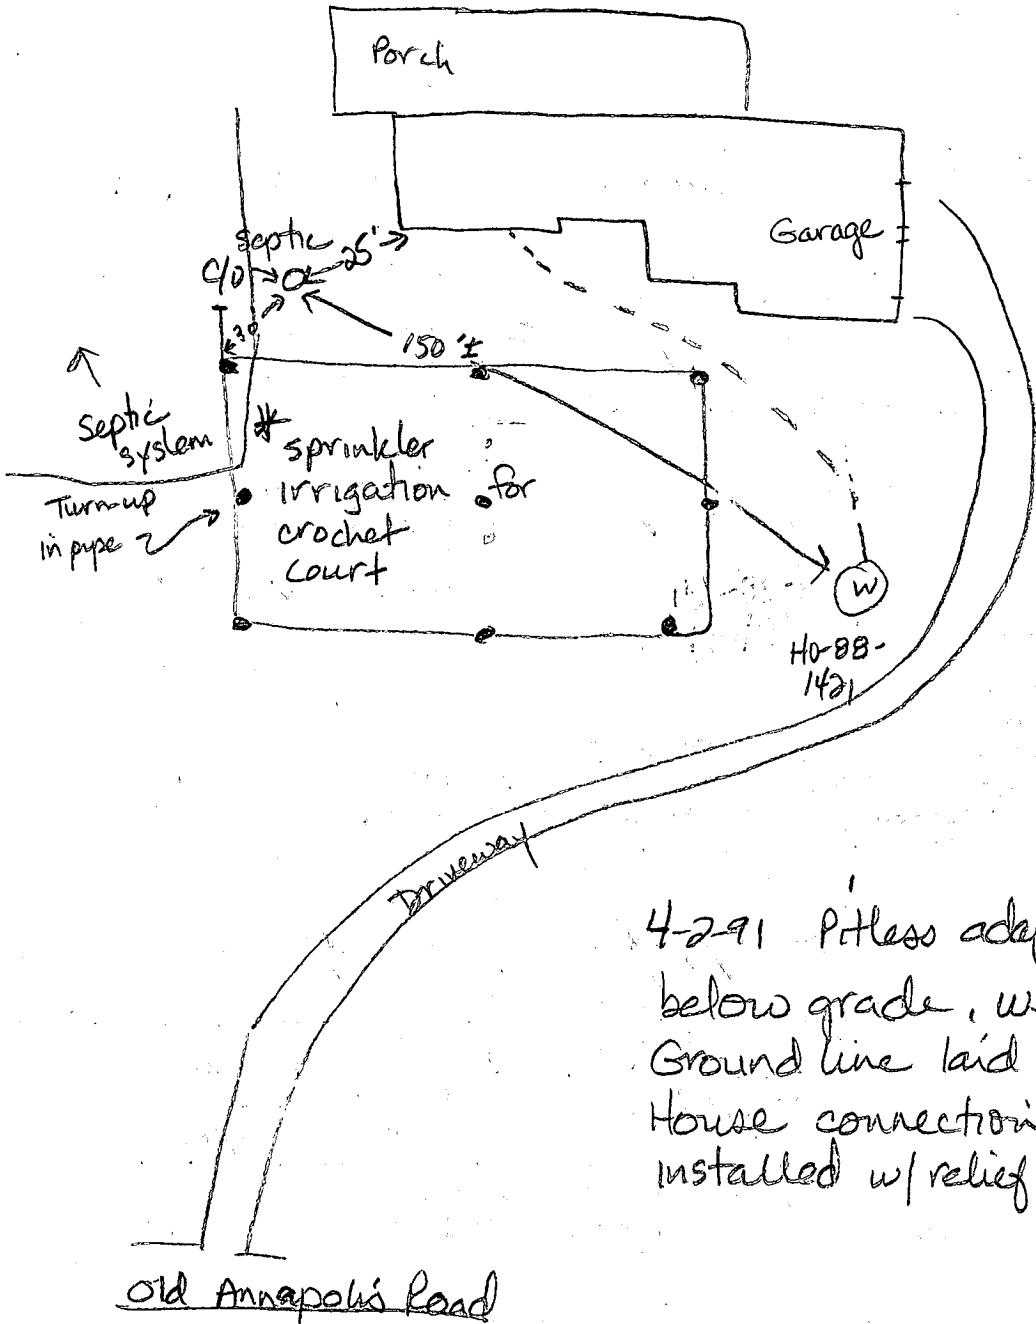 Porch
Garage
Septic
C/O
25'
30
150'±
Septic
system
Turn-up
in pipe
* sprinkler
irrigation for
crochet
court
W
HO-88-
1421
Driveway
4-2-91 Pitless adap
below grade, w
Ground line laid
House connection
installed w/ relief
Old Annapolis Road